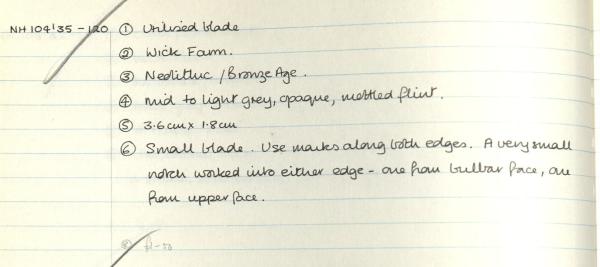 NH 104'35 - 120 ① Utilised blade
② Wick Farm.
③ Neolithic / Bronze Age.
④ mid to light grey, opaque, mottled flint.
⑤ 3.6cm x 1.8cm
⑥ Small blade. Use marks along both edges. A very small
notch worked into either edge - one from bulbar face, one
from upper face.